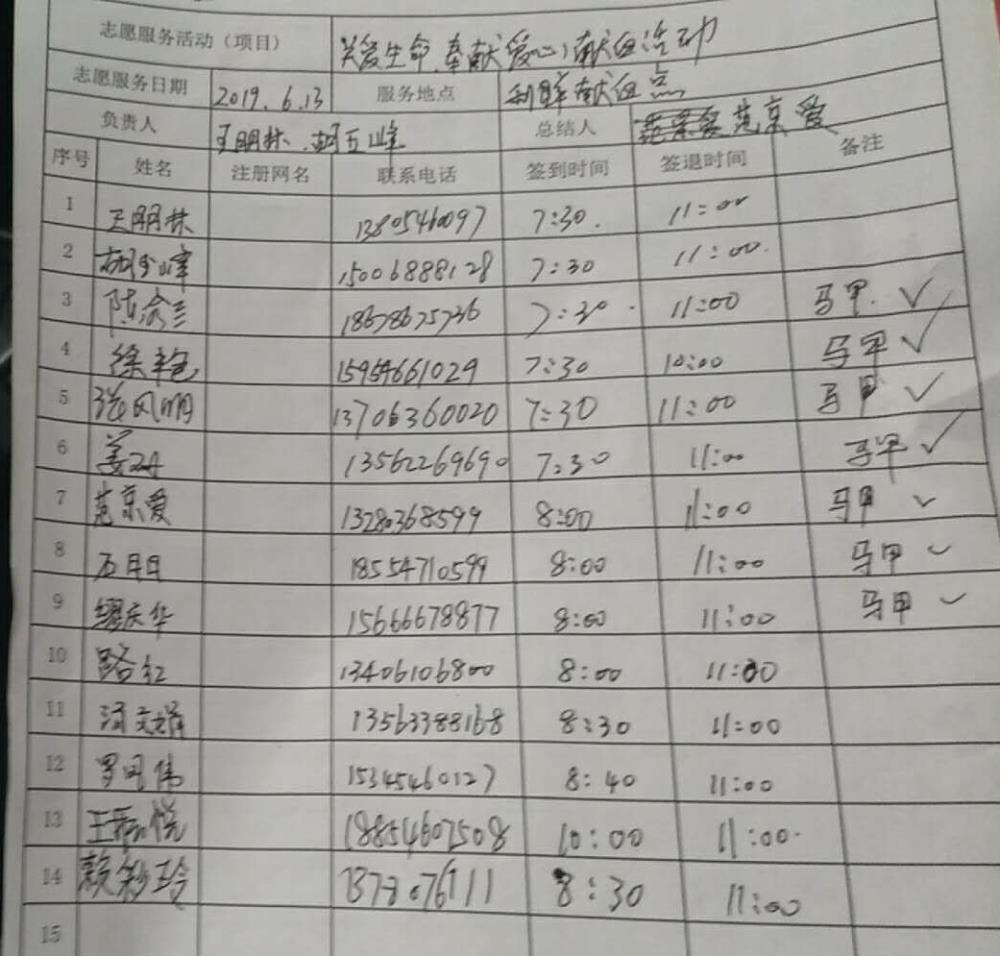 志愿服务活动（项目） 关爱生命、奉献爱心，献血活动
志愿服务日期 2019.6.13 服务地点 利群献血点
负责人 王朋林、胡玉峰 总结人 范京爱
序号 姓名 注册网名 联系电话 签到时间 签退时间 备注
1 王朋林 13805460097 7:30. 11:00
2 胡玉峰 15006888128 7:30 11:00.
3 18678675736 7:30 11:00 马甲. ✓
4 徐 15954661029 7:30 10:00 马甲 ✓
5 张风明 13706360020 7:30 11:00 马甲 ✓
6 姜 13562269690 7:30 11:00 马甲 ✓
7 范京爱 13280368599 8:00 11:00 马甲 ✓
8 18554710599 8:00 11:00 马甲 ✓
9 庆华 15666678877 8:00 11:00 马甲 ✓
10 路红 13406106800 8:00 11:00
11 13563388168 8:30 11:00
12 罗 伟 15345460127 8:40 11:00
13 王 悦 18854607508 10:00 11:00.
14 玲 8:30 11:00
15